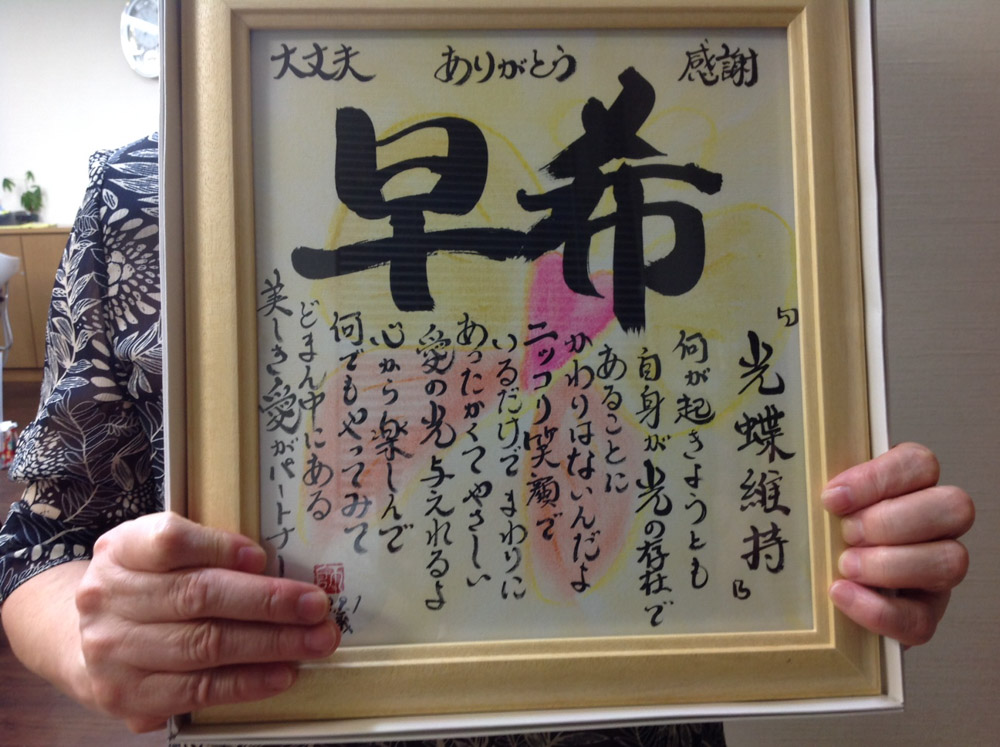 大丈夫 ありがとう 感謝
早希
『光蝶維持』
何が起きようとも
自身が光の存在で
あることに
かわりはないんだよ
ニッコリ笑顔で
いるだけでまわりに
あったかくてやさしい
愛の光与えれるよ
心から楽しんで
何でもやってみて
どまん中にある
美しき愛がパートナー